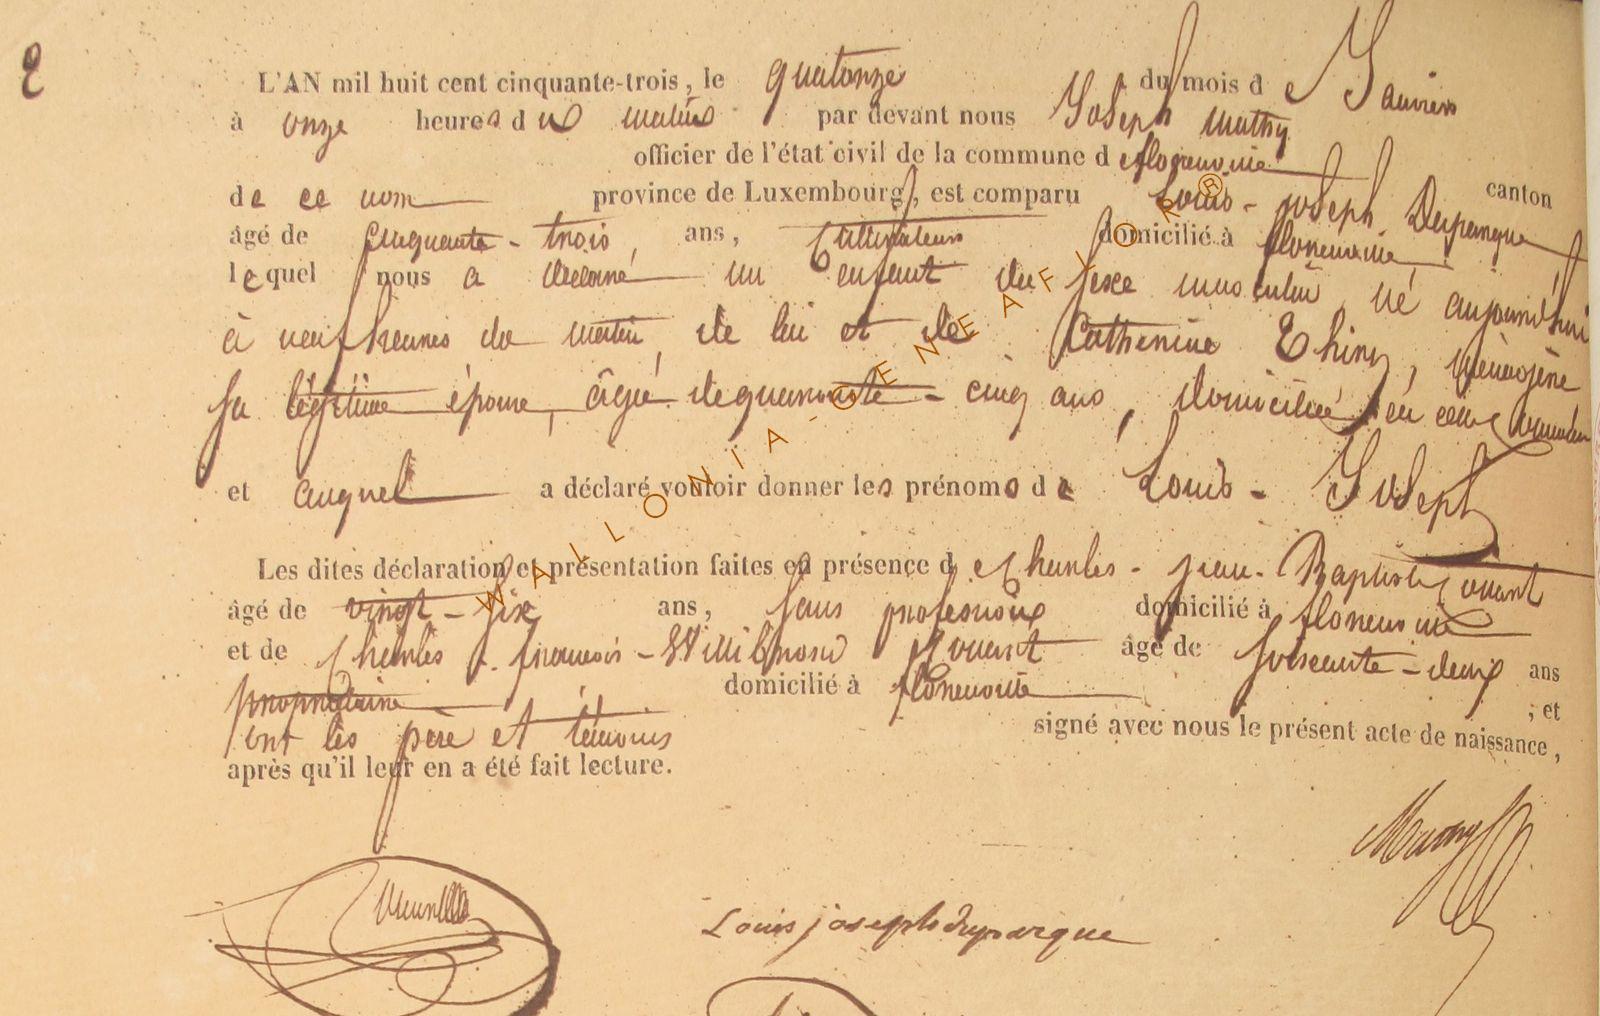 2
L'AN mil huit cent cinquante-trois, le quatorze du mois de Janvier
à onze heures du matin par devant nous Joseph Mathy
officier de l'état civil de la commune de florenville
canton
de ce nom province de Luxembourg, est comparu Louis-Joseph Duparque
âgé de cinquante-trois ans, Cultivateur domicilié à florenville
lequel nous a déclaré un enfant du sexe masculin, né aujourd'hui
à neuf heures du matin, de lui et de Catherine Thiry, ménagère
sa légitime épouse, âgée de quarante-cinq ans, domiciliée en cette commune
et auquel a déclaré vouloir donner les prénoms de Louis-Joseph
Les dites déclaration et présentation faites en présence de Charles-Jean-Baptiste
âgé de vingt-six ans, sans profession domicilié à florenville
et de Charles-françois-Willibrord âgé de soixante-deux ans
propriétaire domicilié à florenville ; et
ont les père et témoins signé avec nous le présent acte de naissance,
après qu'il leur en a été fait lecture.
Mathy
Louis joseph duparque
WALLONIA-GENEAFLOR®